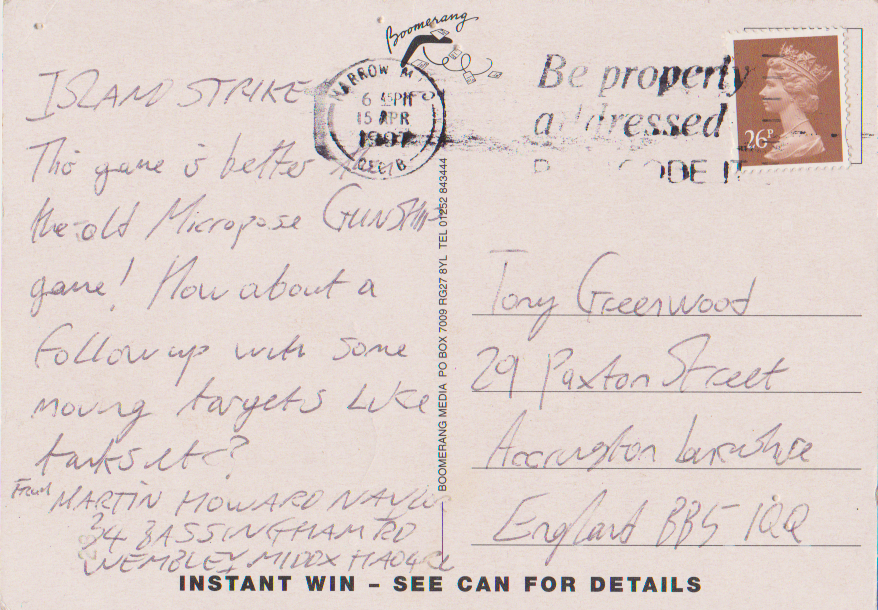 Boomerang
HARROW MIDDX
6 45PM
15 APR
1997
Be properly
addressed
ODE IT
26P
ISLAND STRIKE
This game is better than
the old Micropose GUNSHIP
game! How about a
follow up with some
moving targets like
tanks etc?
From MARTIN HOWARD NAYLOR
34 BASSINGHAM RD
WEMBLEY MIDDX HA04
BOOMERANG MEDIA PO BOX 7009 RG27 8YL TEL 01252 843444
Tony Greenwood
29 Paxton Street
Accrington Lancashire
England BB5 1QQ
INSTANT WIN – SEE CAN FOR DETAILS